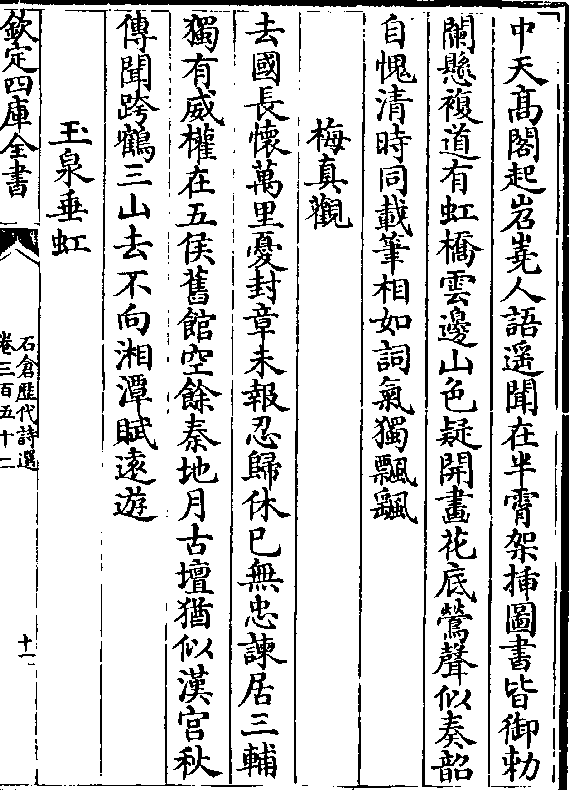 中天髙閣起岧嶤人語遥聞在半霄架揷圖書皆御勅
闌懸複道有虹橋雲邊山色疑開畫花底鶯聲似奏韶
自愧清時同載筆相如詞氣獨飄颻
梅真觀
去國長懷萬里憂封章未報忍歸休已無忠諫居三輔
獨有威權在五侯舊館空餘秦地月古壇猶似漢宫秋
傳聞跨鶴三山去不向湘潭賦逺遊
玉泉垂虹
欽定四庫全書
石倉歴代詩選
卷三百五十二
十一